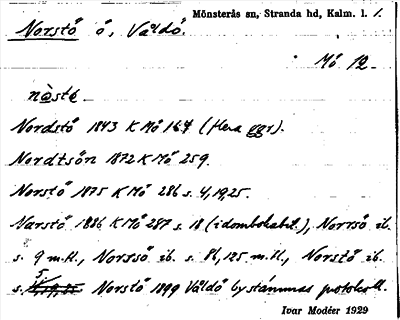 Mönsterås sn, Stranda hd, Kalm. l. 1.
Norstö ö, Våldö.
Mö 12.
nòstẹ
Nordstö 1843 K Mö 164 (flera ggr).
Nordtsön 1872 K Mö 259.
Norstö 1875 K Mö 286 s. 4, 19, 25.
Narstö 1886 K Mö 287 s. 18 (idombokabil.), Norrsö ib.
s. 9 m.fl., Norrsö ib. s. 86, 125 m.fl., Norstö ib.
s. Norstö 1899 Våldö bystämmas protokoll.
Ivar Modéer 1929